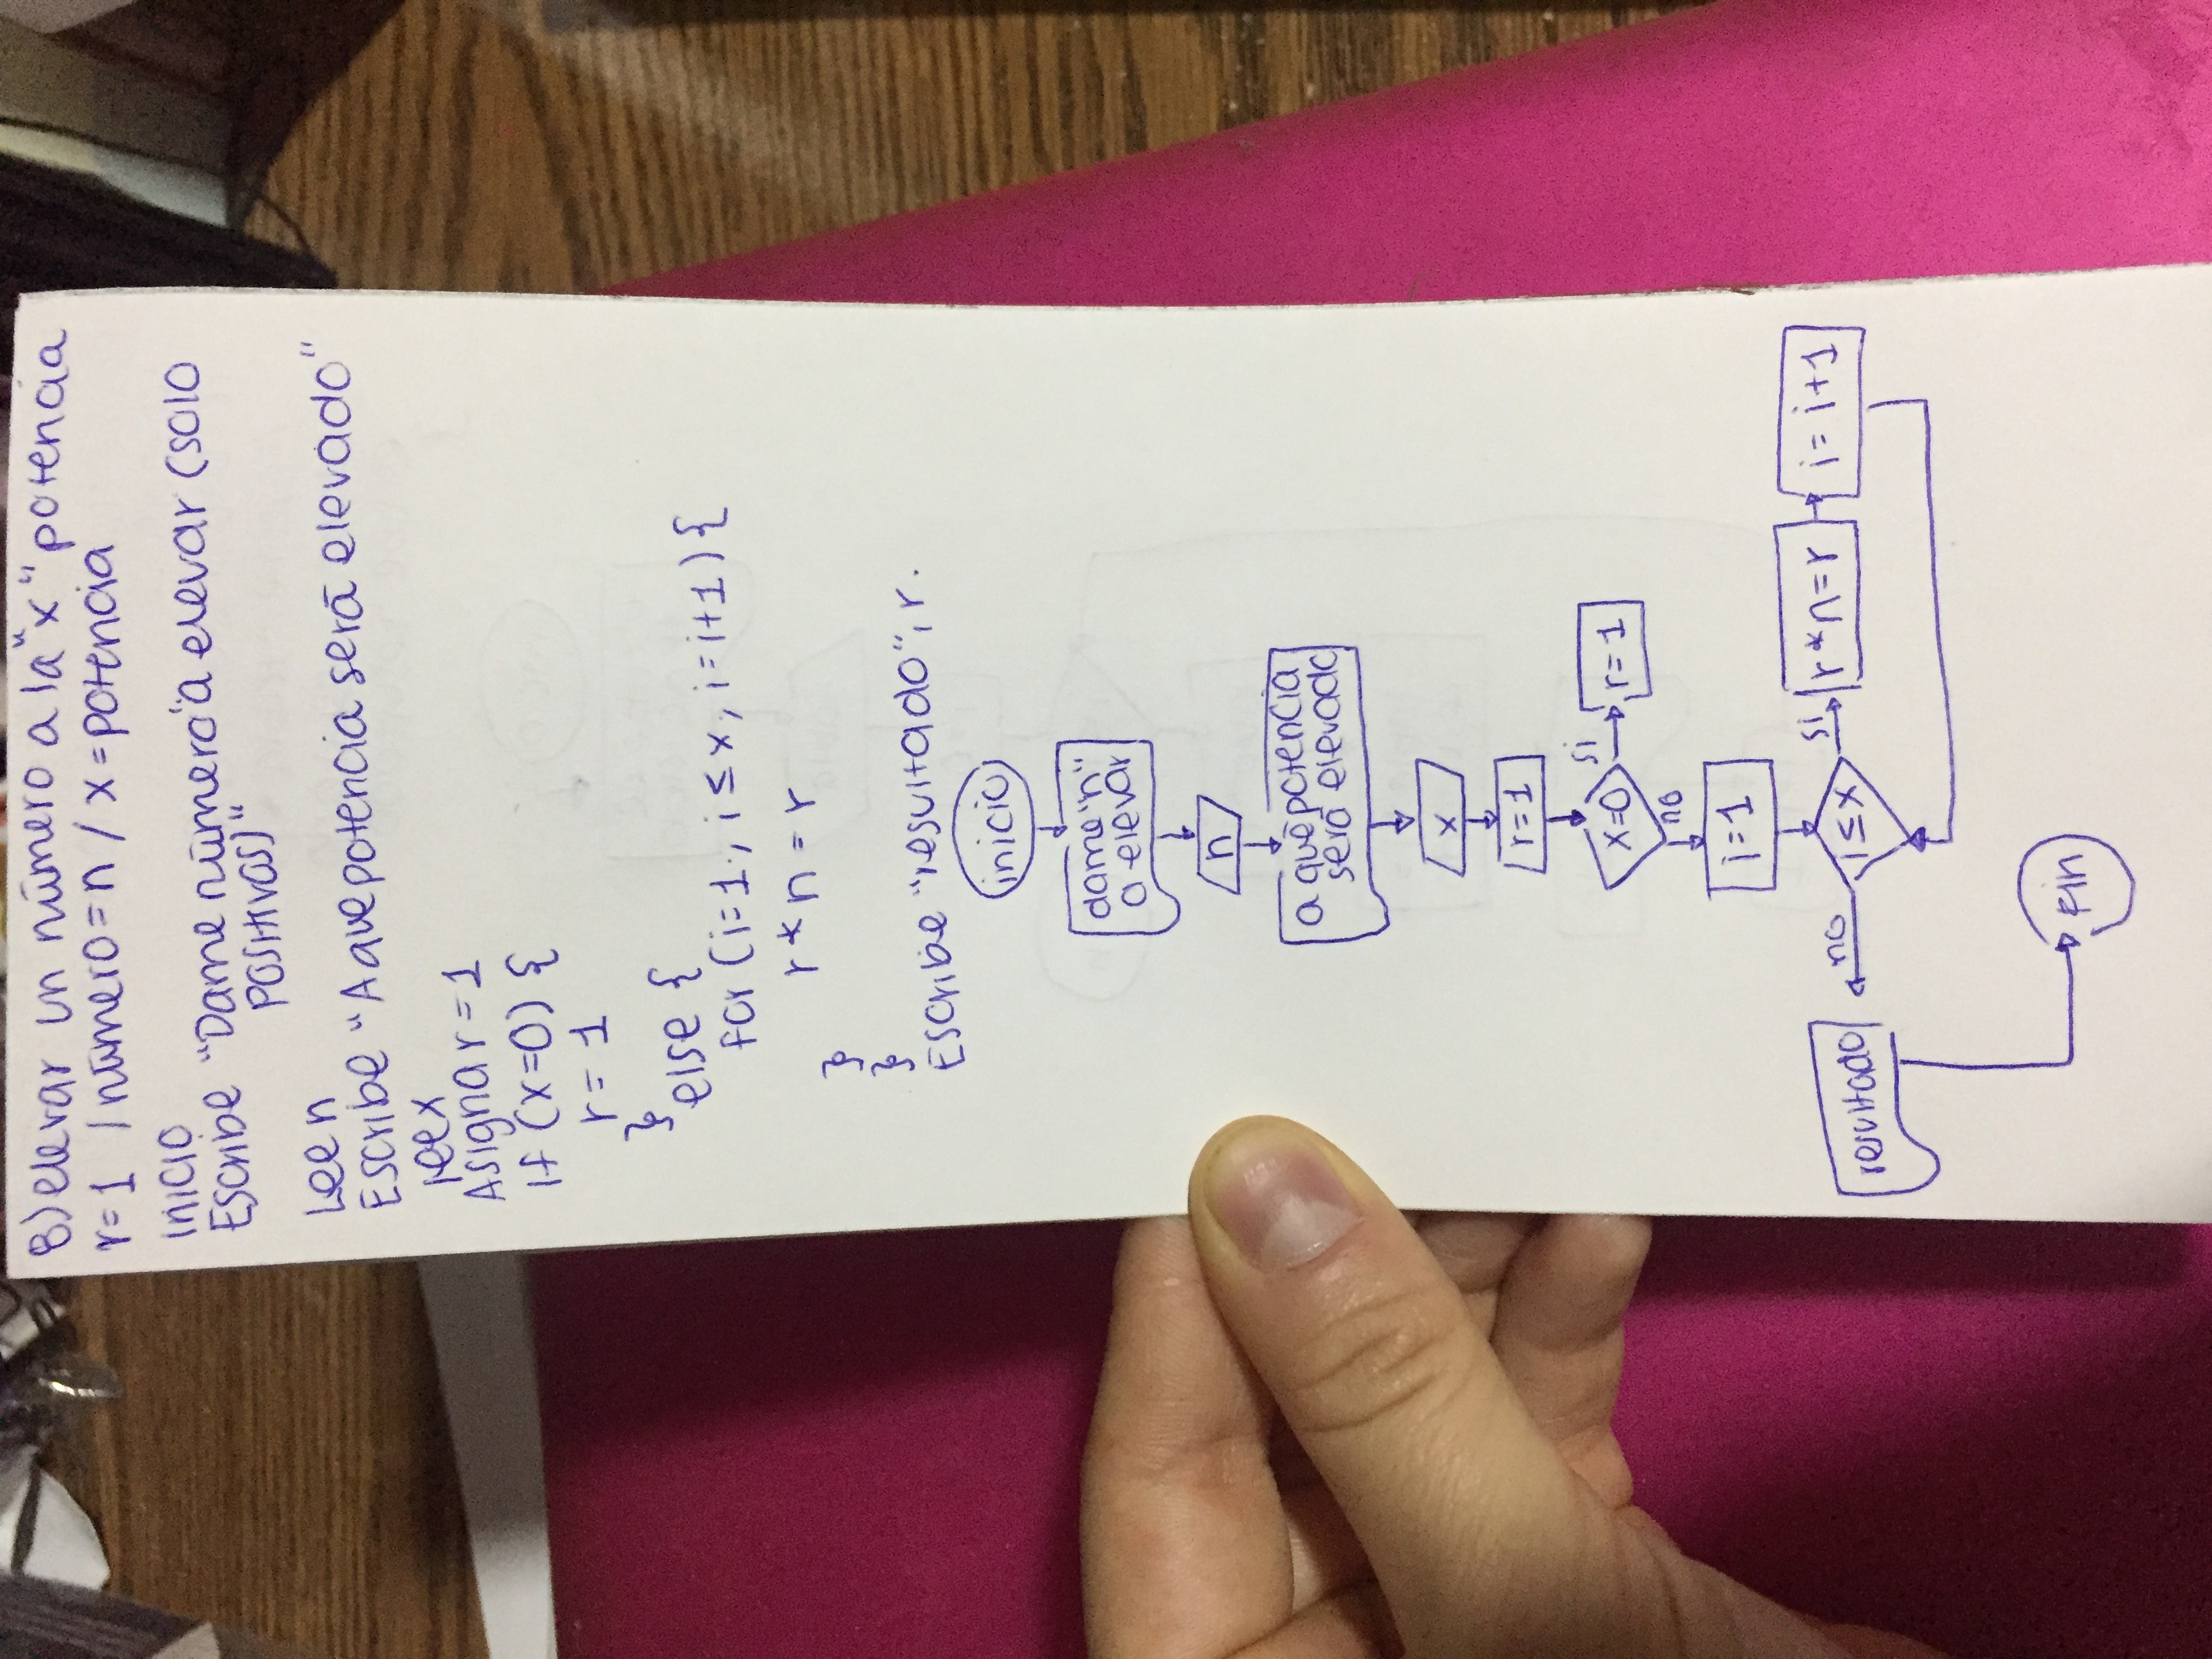 8) elevar un número a la "x" potencia
r=1 / número = n / x = potencia
inicio
Escribe "Dame número "a elevar (solo
positivos)"
Lee n
Escribe "A que potencia será elevado"
lee x
Asigna r = 1
if (x=0) {
r = 1
}
else {
for (i=1, i ≤ x, i = i+1) {
r * n = r
}
}
Escribe "resultado", r.
inicio
dame "n"
a elevar
n
a qué potencia
será elevado
x
r=1
x=0
si
r=1
no
i=1
i≤x
si
r*n=r
i= i+1
no
resultado
Fin